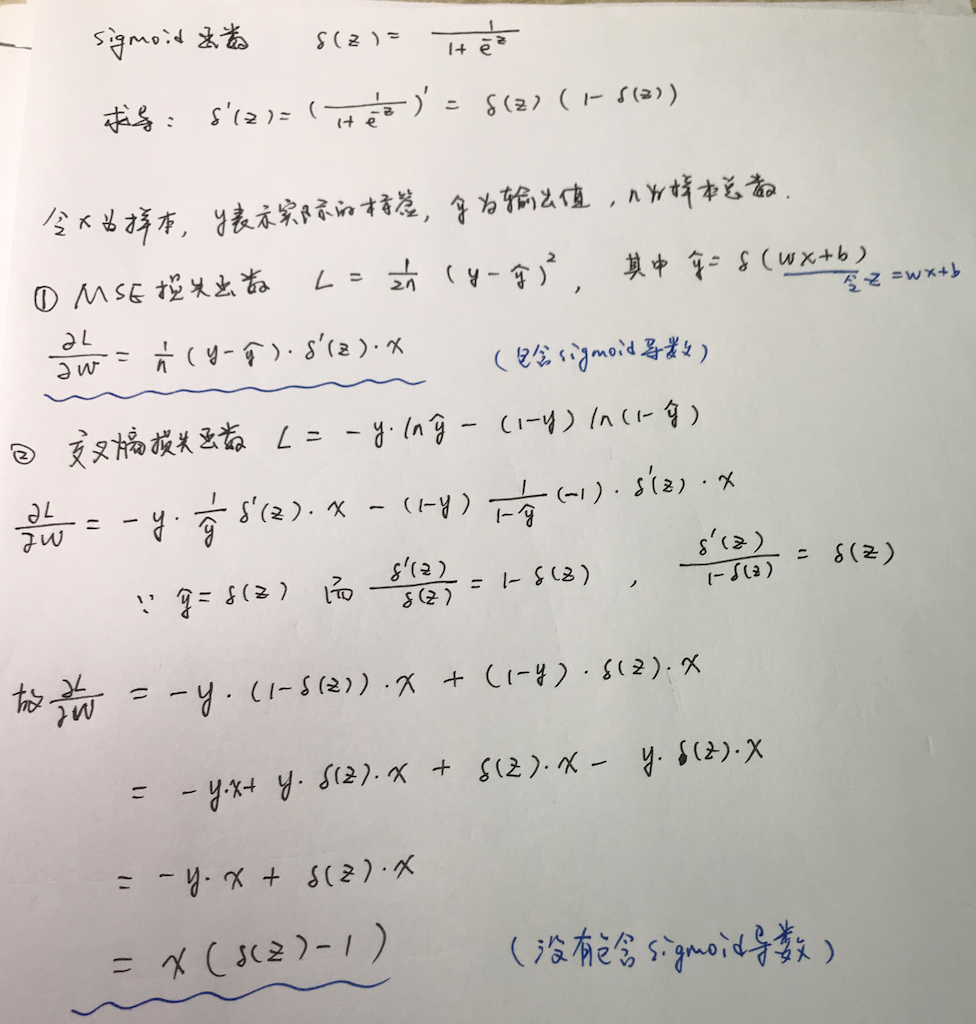 sigmoid函数 δ(z) = 1/(1+e^-z)
求导: δ'(z) = (1/(1+e^-z))' = δ(z)(1-δ(z))
令x为样本, y表示实际的标签, ŷ为输出值, n为样本总数.
① MSE损失函数 L = 1/2n (y-ŷ)², 其中 ŷ = δ(wx+b)
令z=wx+b
∂L/∂W = 1/n (y-ŷ)·δ'(z)·x (包含sigmoid导数)
② 交叉熵损失函数 L = -y·lnŷ - (1-y)ln(1-ŷ)
∂L/∂W = -y·1/ŷ δ'(z)·x - (1-y) 1/(1-ŷ) (-1)·δ'(z)·x
∵ ŷ=δ(z) 而 δ'(z)/δ(z) = 1-δ(z), δ'(z)/(1-δ(z)) = δ(z)
故 ∂L/∂W = -y·(1-δ(z))·x + (1-y)·δ(z)·x
= -y·x + y·δ(z)·x + δ(z)·x - y·δ(z)·x
= -y·x + δ(z)·x
= x(δ(z)-1) (没有包含sigmoid导数)